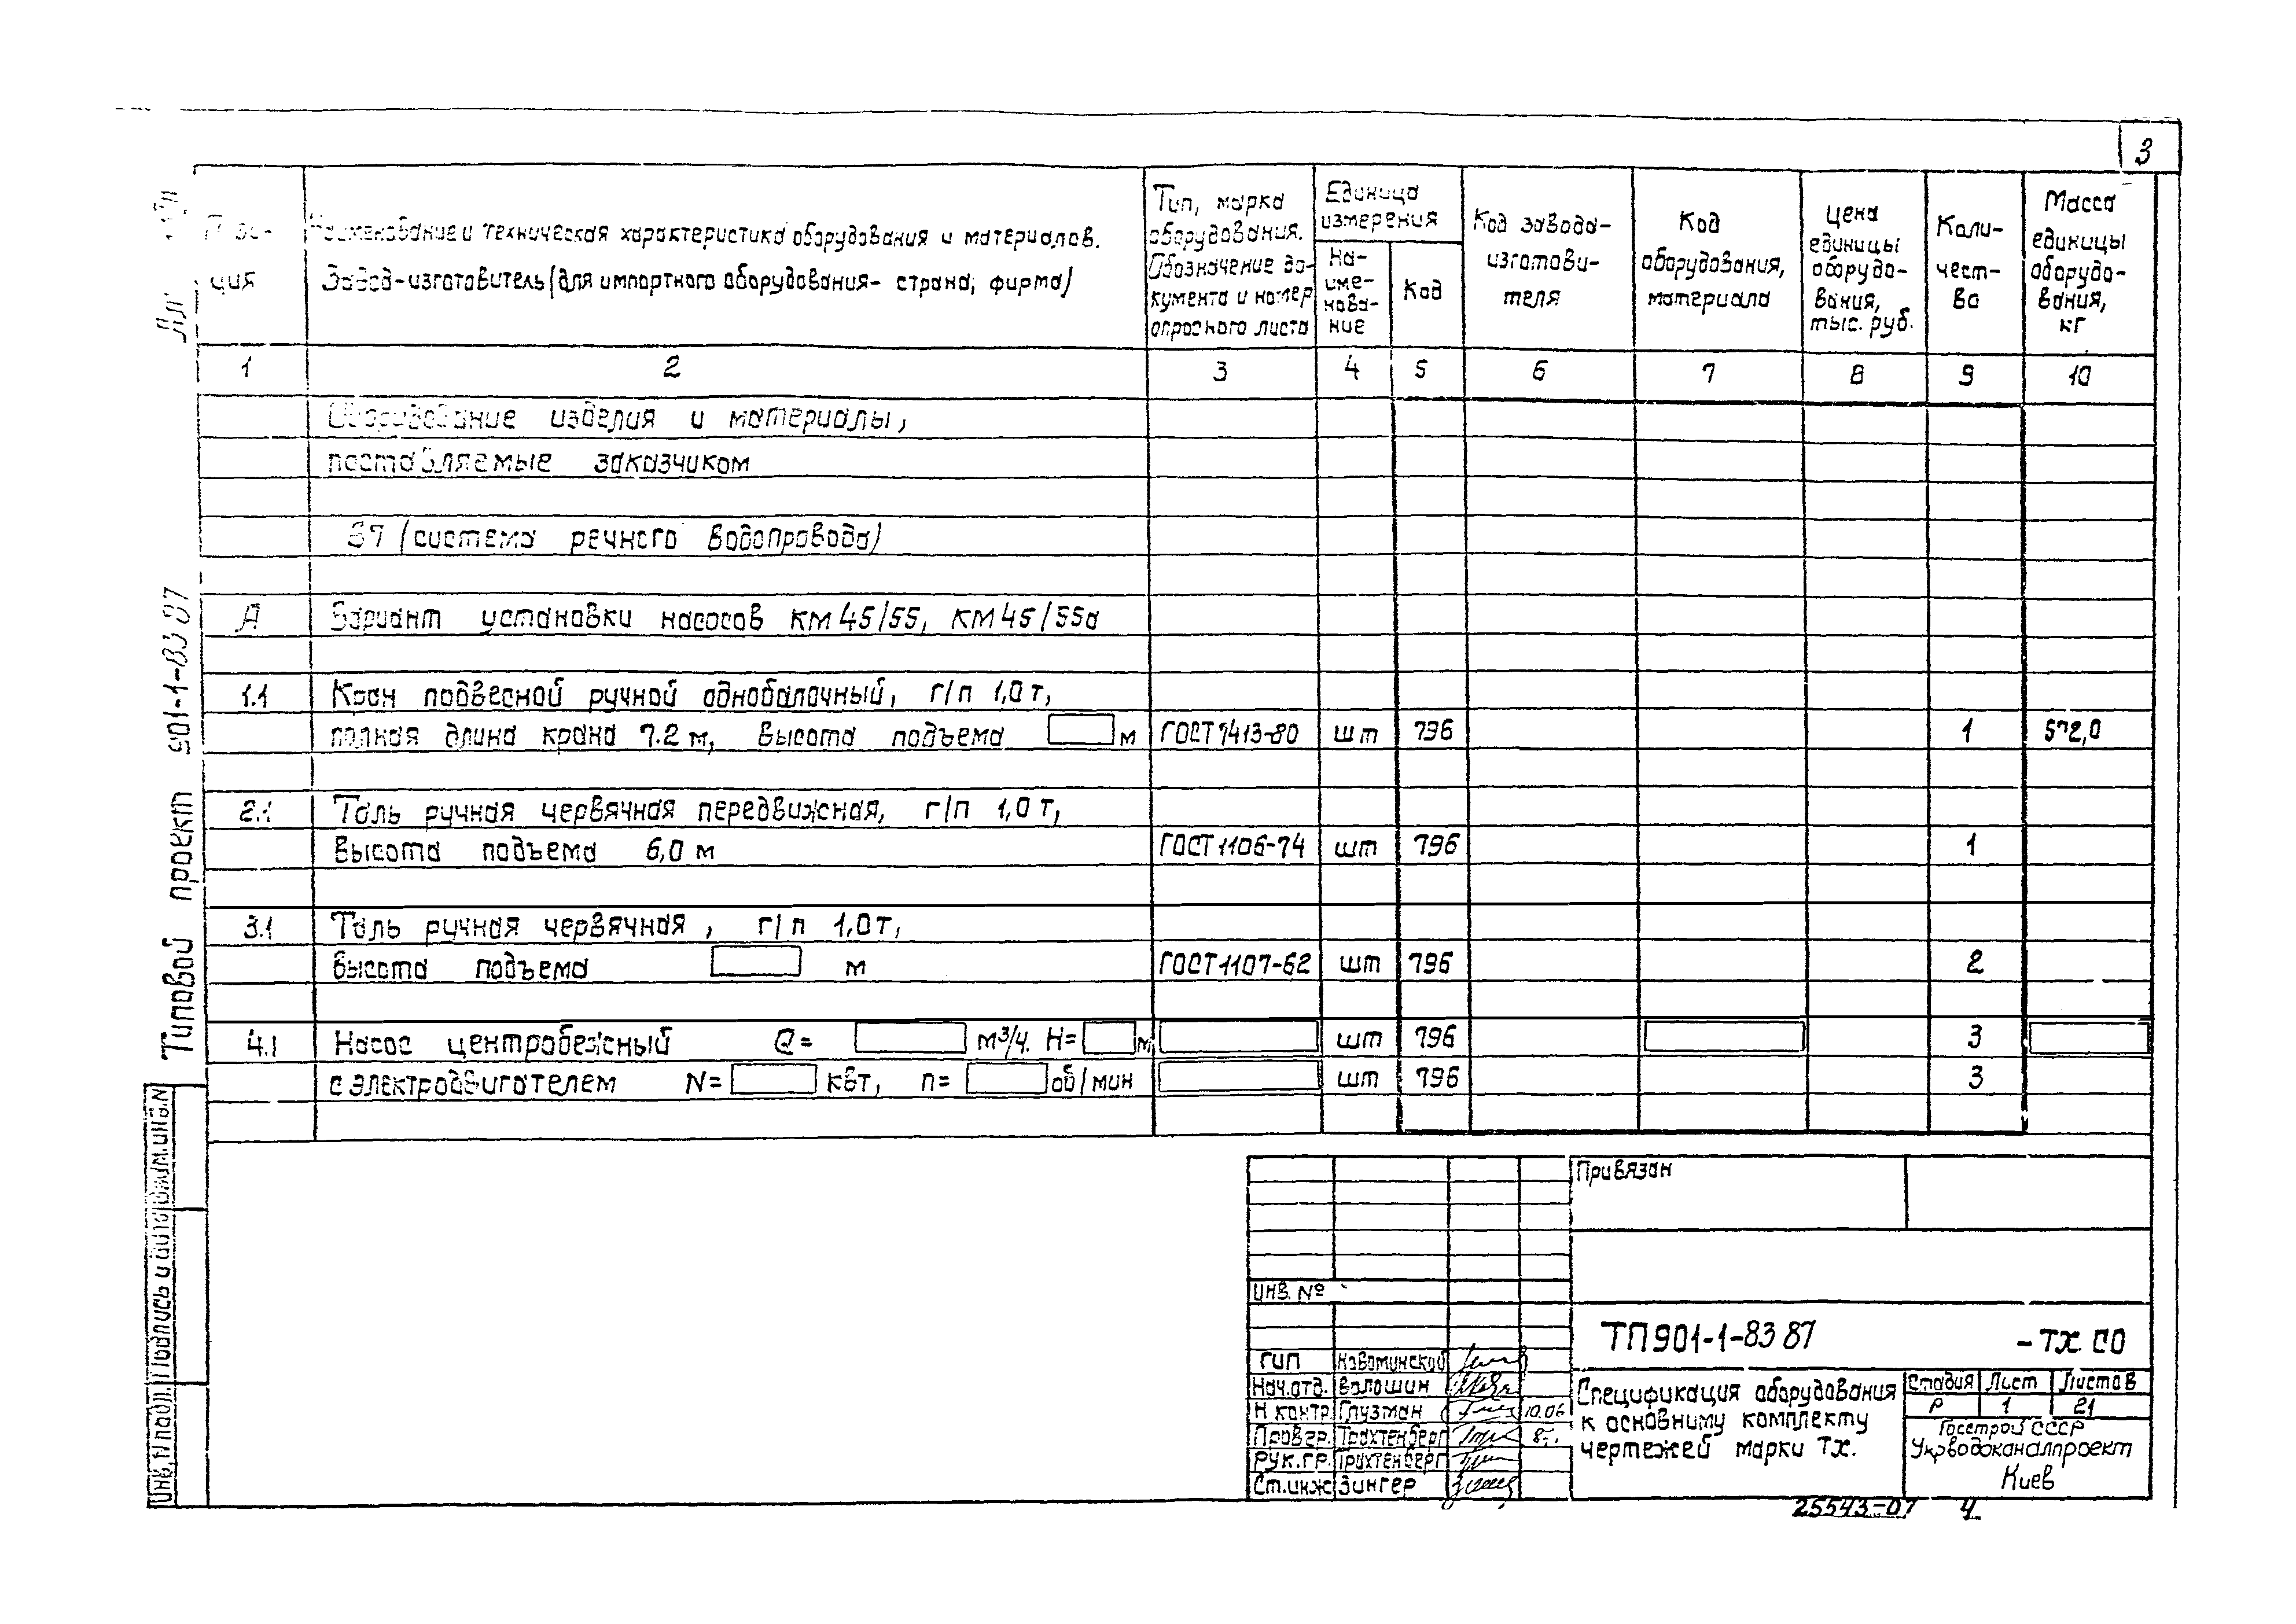 3
Тип, марка
оборудования.
Обозначение до-
кумента и номер
опросного листа
Единица
измерения
На-
име-
нова-
ние
Код
Код завода-
изготови-
теля
Код
оборудования,
материала
Цена
единицы
оборудо-
вания,
тыс. руб.
Коли-
чест-
во
Масса
единицы
оборудо-
вания,
кг
Пози-
ция
Наименование и техническая характеристика оборудования и материалов.
Завод-изготовитель (для импортного оборудования- страна, фирма)
1 2 3 4 5 6 7 8 9 10
Оборудование изделия и материалы,
поставляемые заказчиком
(система речного водопровода)
А Вариант установки насосов КМ 45/55, КМ 45/55а
1.1 Кран подвесной ручной однобалочный, г/п 1,0 т,
полная длина крана 7.2 м, высота подъема м ГОСТ 7413-80 шт 796 1 572,0
2.1 Таль ручная червячная передвижная, г/п 1,0 т,
высота подъема 6,0 м ГОСТ 1106-74 шт 796 1
3.1 Таль ручная червячная, г/п 1,0 т,
высота подъема м ГОСТ 1107-62 шт 796 2
4.1 Насос центробежный Q= м³/ч. Н= м шт 796 3
с электродвигателем N= квт, n= об/мин шт 796 3
Типовой проект 901-1-83 87
Инв. N подл. Подпись и дата Взам. инв. N
Привязан
Инв. №
ТП 901-1-83 87 -ТХ.СО
ГИП Новоминский
Нач.отд. Волошин
Н контр. Глузман 10.06
Провер. Трахтенберг
Рук.гр. Трахтенберг
Ст.инж Зингер
Спецификация оборудования
к основниму комплекту
чертежей марки ТХ.
Стадия Лист Листов
Р 1 21
Госстрой СССР
Укрводоканалпроект
Киев
25543-07 4